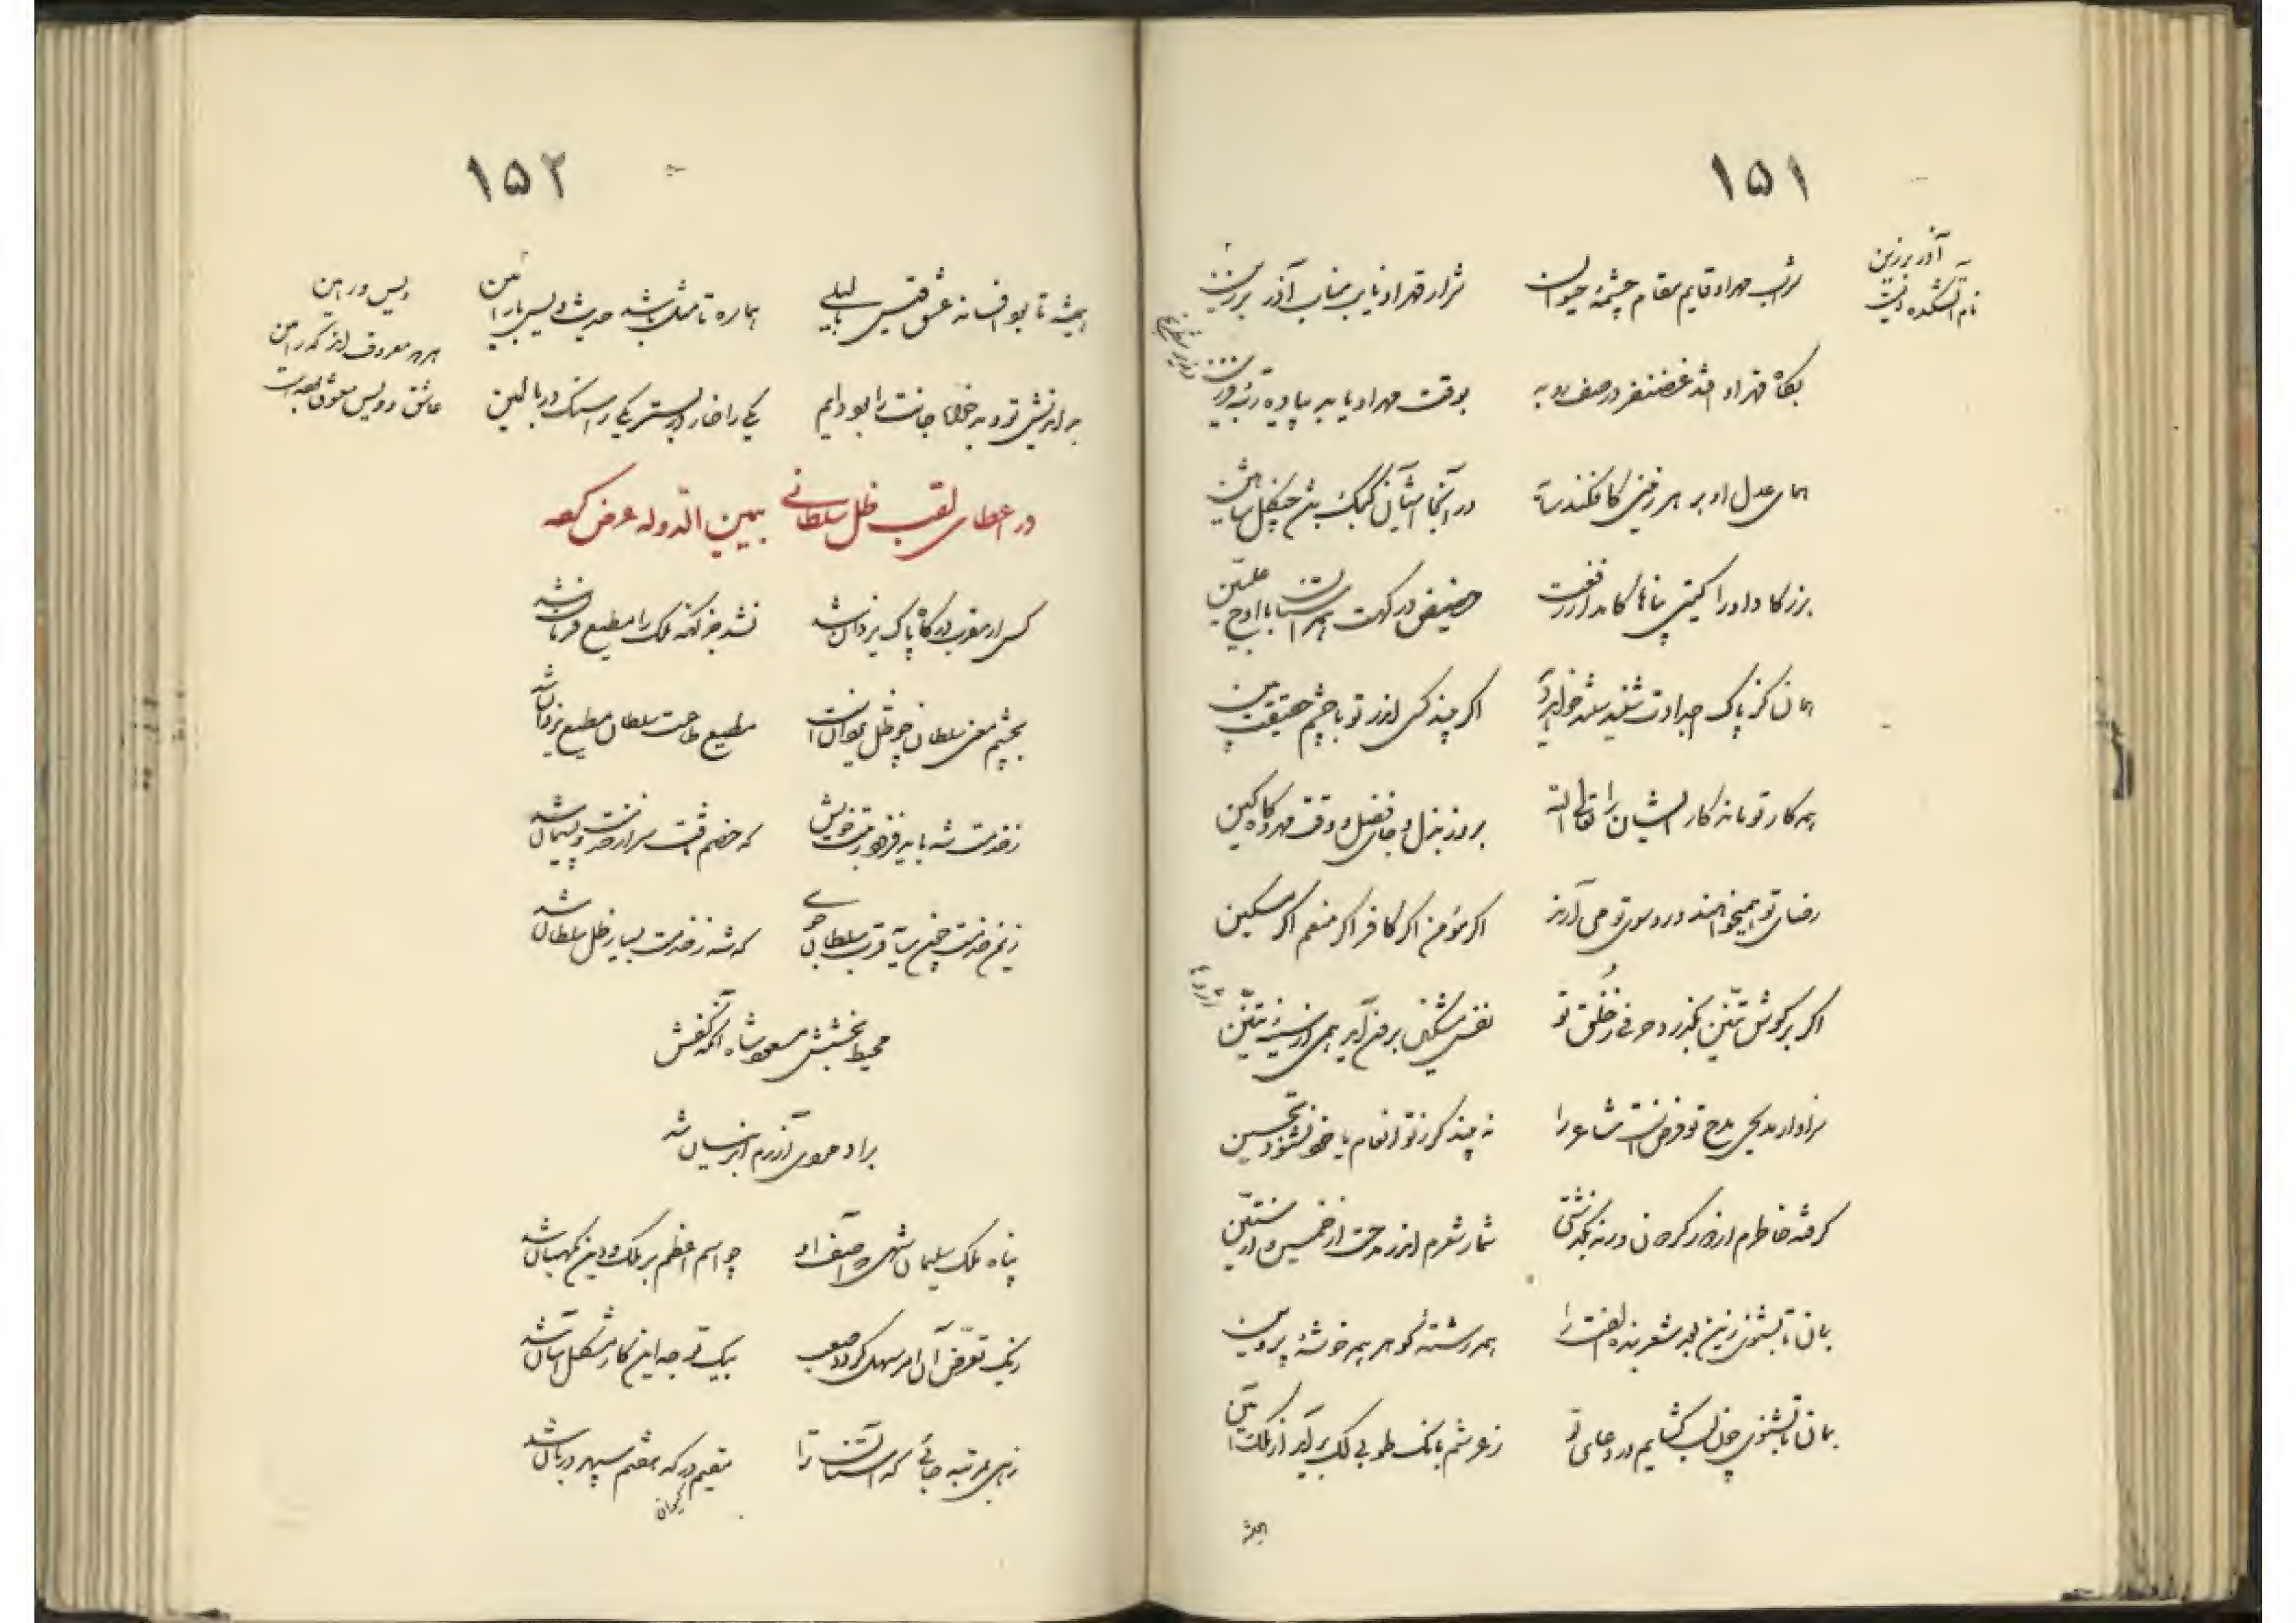 ۱۵۱
آذر برزین
نام آتشکده ایست
شراب مهر او قایم مقام چشمهٔ حیوان
شرار قهر او نایب مناب آذر برزین
بگاه قهر او افتد غضنفر در صف روبه
بوقت مهر او یابد پیاده رتبهٔ فرزین
همای عدل او بر هر زمینی کافکند سایه
در آنجا آشیان کبک بین چنگل شاهین
بزرگا داورا گیتی پناها کامد از رفعت
حضیض درگهت همراستان با اوج علیین
اگر چند کس اندر تو با چشم حقیقت بین
همه کار تو مانه کار ایشان را
بروز بذل و جای فضل و وقت مهر و گاه کین
رضای تو همیخواهند و رو سوی تو می آرند
اگر مؤمن اگر کافر اگر منعم اگر مسکین
اگر بر گوش تنین بگذرد حرفی ز خلق تو
نفس مشکین برون آید همی از سینهٔ تنین
سزاوار مدیحی مدح تو فرض است شاعر را
نه چند کز تو انعام یا خود نشنود تحسین
گرفته خاطرم از کار کرمان ورنه بگذشتی
شمار شعرم اندر مدحت از خمسین و از ستین
بمان تا بشنوی زین بعد شعر بنده الفت را
همه رشتهٔ گوهر همه خوشهٔ پروین
بمان تا بشنوی چون لب گشایم در دعای تو
ز عرشم بانک طوبی لک بر آید از ملک آمین
همیشه
۱۵۲
همیشه تا بود افسانه عشق قیس با لیلی
هماره تا مثل باشد حدیث ویس با رامین
ویس و رامین
هر دو معروف اند که رامین
عاشق و ویس معشوقه بوده است
بداندیش تو و بدخواه جانت را بود دایم
یکی را خار در بستر یکی را سنگ در بالین
در اعطای لقب ظل سلطانی بیمین الدوله عرض کرده
کسی از مقرب درگاه پاک یزدان شد
نشد جز آنکه ملک را مطیع فرمان شد
بچشم معنی سلطان چو ظل یزدان است
مطیع طاعت سلطان مطیع یزدان شد
ز خدمت شه پایه فزود رتبت خویش
که خصم سر از خدمت و پشیمان شد
زیمن خدمت چون سایه قرب سلطان جوی
که شه ز خدمت بسیار ظل سلطان شد
محیط بخشش مسعود شاه آنکه کفش
براد مردی آزرم ابر نیسان شد
پناه ملک سلیمان شهی که آصف او
چو اسم اعظم بر ملک و دین نگهبان شد
بیک تعرض آن امر سهل گردد صعب
بیک توجه این کار مشکل آسان شد
زهی بمرتبه جائی که آستانت را
مقیم درگه هفتم سپهر دربان شد
کیوان